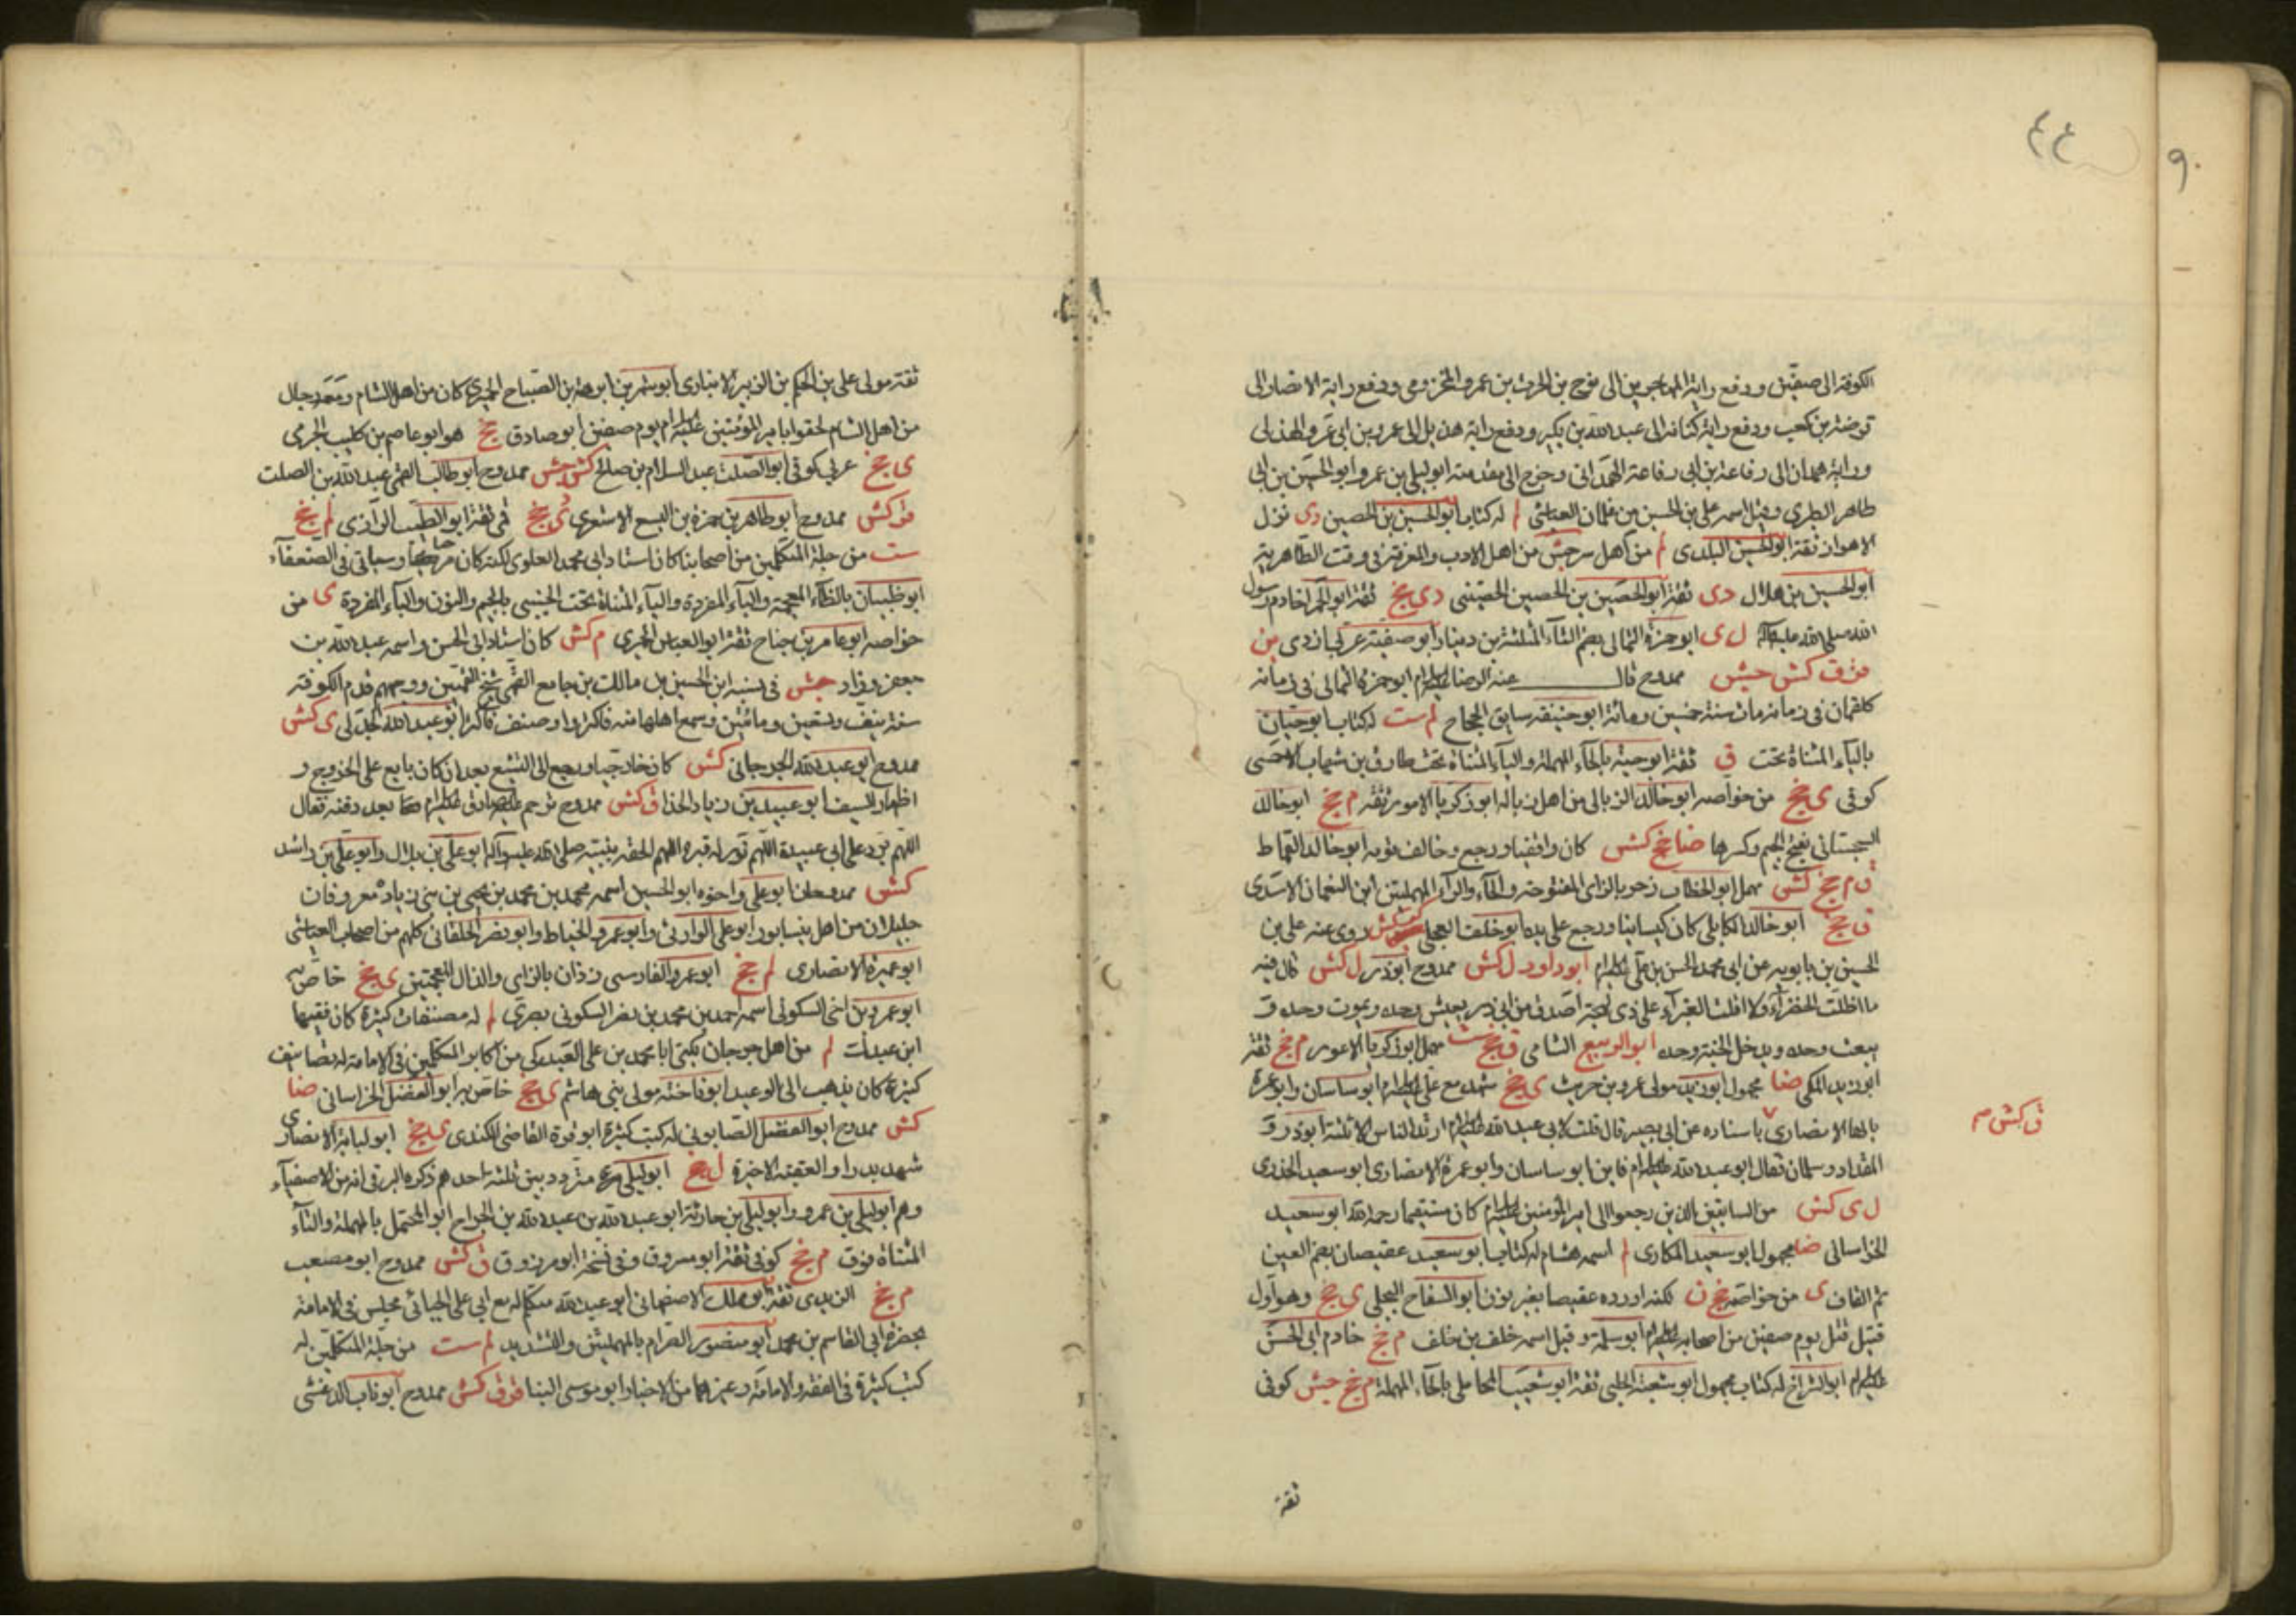 ٤٤
٩٠
الكوفة الى صفين ودفع راية المهاجرين الى نوح بن الحرث بن عمرو المخزومى ودفع راية الانصار الى
قرضة بن كعب ودفع راية كنانة الى عبد الله بن بكير ودفع راية هذيل الى عمرو بن ابى عمرو الهذلى
وراية همدان الى رفاعة بن ابى رفاعة الهمدانى وخرج الى مقدمته ابو ليلى بن عمرو ابو الحسين بن ابى
طاهر الطبرى وقيل اسمه على بن الحسين من غلمان العياشى لم له كتاب ابو الحسين بن الحصين دى نزل
الاهواز ثقة ابو الحسين البلدى لم من اهل من اهل الادب والمعرفة فى وقت الطاهرية
ابو الحسين بن هلال دى ثقة ابو الحصين بن الحصين الحصينى دى جخ ثقة ابو الحمرا خادم رسول
الله صلى الله عليه وآله ل ى ابو حمزة الثمالى بضم الثاء المثلثة بن دينار ابو صفية عربى ازدى ين
قر ق كش جش ممدوح قال عنه الرضا عليه السلام ابو حمزة الثمالى فى زمانه
كلقمان فى زمانه مات سنة خمسين ومائة ابو حنيفة سابق الحجاج لم ست له كتاب ابو حيان
بالياء المثناة تحت ق ثقة ابو حية بالحاء المهملة والياء المثناة تحت طارق بن شهاب الاحمسى
كوفى ى جخ من خواصه ابو خالد الزبالى من اهل زباله ابو زكريا الاعور ثقة م جخ ابو خالد
السجستانى بفتح الجيم وكسرها ضا جخ كش كان واقفيا ورجع وخالف ابو خالد القماط
ق م جخ كش مهمل ابو الخطاب زحر بالزاى المفتوحة والحاء والراء المهملتين ابن النعمان الاسدى
ق جخ ابو خالد الكابلى كان كيسانيا ورجع على يده ابو خلف العجلى كش روى عنه على بن
الحسين بن بابويه عن ابى محمد الحسن بن على عليه السلام ابو داود ل كش ممدوح ابو ذر ل كش قال فيه
ما اظلت الخضراء ولا اقلت الغبراء على ذى لهجة اصدق من ابى ذر يعيش وحده ويموت وحده و
يبعث وحده ويدخل الجنة وحده ابو الربيع الشامى ق جخ ست مهمل ابو زكريا الاعور م جخ ثقة
ابو زيد المكى ضا مجهول ابو زيد مولى عمرو بن حريث ى جخ شهد مع على عليه السلام ابو ساسان وابو عمرة
بالهاء الانصارى باسناده عن ابى بصير قال قلت لابى عبد الله عليه السلام ارتد الناس الا ثلثة ابو ذر و
ق كش م
المقداد وسلمان فقال ابو عبد الله عليه السلام فاين ابو ساسان وابو عمرة الانصارى ابو سعيد الخدرى
ل ى كش من السابقين الذين رجعوا الى امير المؤمنين عليه السلام كان مستقيما رحمه الله ابو سعيد
الخراسانى ضا مجهول ابو سعيد المكارى لم اسمه هشام له كتاب ابو سعيد عقيصان بضم العين
ثم القاف ى من خواصه جخ ن لكنه اورده عقيصا بغير نون ابو السفاح البجلى ى جخ وهو اول
قتيل قتل يوم صفين من اصحابه عليه السلام ابو سلمة وقيل اسمه خلف بن خلف م جخ خادم ابى الحسن
عليه السلام له كتاب مجهول ابو شعبة الحلبى ثقة ابو شعيب المحاملى بالحاء المهملة م جخ جش كوفى
ثقة
ثقة مولى على بن الحكم بن الزبير الانبارى ابو شمر بن ابرهة بن الصباح الحميرى كان من اهل الشام ومعه رجال
من اهل الشام لحقوا بامير المؤمنين عليه السلام يوم صفين ابو صادق جخ هو ابو عاصم بن كليب الجرمى
ى جخ عربى كوفى ابو الصلت عبد السلام بن صالح كش جش ممدوح ابو طالب القمى عبد الله بن الصلت
كش ممدوح ابو طاهر بن حمزة بن اليسع الاشعرى دى جخ قمى ثقة ابو الطيب الرازى لم جخ
ست من جلة المتكلمين من اصحابنا كان استاد ابى محمد العلوى لكنه كان وسياتى فى الضعفاء
ابو ظبيان بالظاء المعجمة والباء المفردة والياء المثناة تحت الجنبى بالجيم والنون والباء المفردة ى من
خواصه ابو عامر بن جناح ثقة ابو العباس الحميرى م كش كان استاد ابى الحسن واسمه عبد الله بن
جعفر وزاد جش فى نسبه ابن الحسين بن مالك بن جامع القمى شيخ القميين ووجههم قدم الكوفة
سنة نيف وتسعين ومائتين وسمع اهلها منه فاكثروا وصنف فاكثر ابو عبد الله الجدلى ى كش
ممدوح ابو عبد الله الجرجانى كش كان خارجيا ورجع الى التشيع بعد ان كان بايع على الخروج و
اظهار السيف ابو عبيدة بن زياد الحذا ق كش ممدوح ترحم عليه الصادق عليه السلام بعد دفنه فقال
اللهم برد على ابى عبيدة اللهم نور له قبره اللهم الحقه بنبيه صلى الله عليه وآله ابو على بن بلال وابو على بن راشد
كش ممدوحان ابو على واخوه ابو الحسين اسمه محمد بن محمد بن يحيى بن بنى زيادة معروفان
جليلان من اهل نيسابور ابو على الوارثى وابو عمرو الخياط وابو نصر الخلقانى كلهم من اصحاب العياشى
ابو عميرة الانصارى لم جخ ابو عمرو الفارسى زذان بالزاى والذال المعجمتين ى جخ خاص به
ابو عمرو بن اخى السكونى اسمه احمد بن محمد بن نصر السكونى بصرى لم له مصنفات كثيرة كان فقيها
ابن عبدك لم من اهل جرجان يكنى ابا محمد بن على العبدكى من اكابر المتكلمين فى الامامة له تصانيف
كثيرة كان يذهب الى الوعيد ابو فاختة مولى بنى هاشم ى جخ خاص به ابو الفضل الخراسانى ضا
كش ممدوح ابو الفضل الصابونى له كتب كثيرة ابو قرة القاضى الكندى ى جخ ابو لبابة الانصارى
شهد بدرا والعقبة الاخيرة ل جخ ابو ليلى متردد بين ثلثة احدهم ذكره البرقى انه من الاصفياء
وهم ابو ليلى بن عمرو وابو ليلى بن حارثة ابو عبد الله بن عبد الله بن الجراح ابو المحتمل بالمهملة والتاء
المثناة فوق م جخ كوفى ثقة ابو مسروق وفى نسخة ابو مرزوق ق كش ممدوح ابو مصعب
م جخ الزيدى ثقة الاصفهانى ابو عبد الله متكلم له مع ابى على الجبائى مجلس فى الامامة
بحضرة ابى القاسم بن محمد ابو منصور الصرام بالمهملتين والتشديد لم ست من جلة المتكلمين له
كتب كثيرة فى الفقه والامامة وغيرهما من الاخبار ابو موسى البنا ق كش ممدوح ابو ناب الدغشى